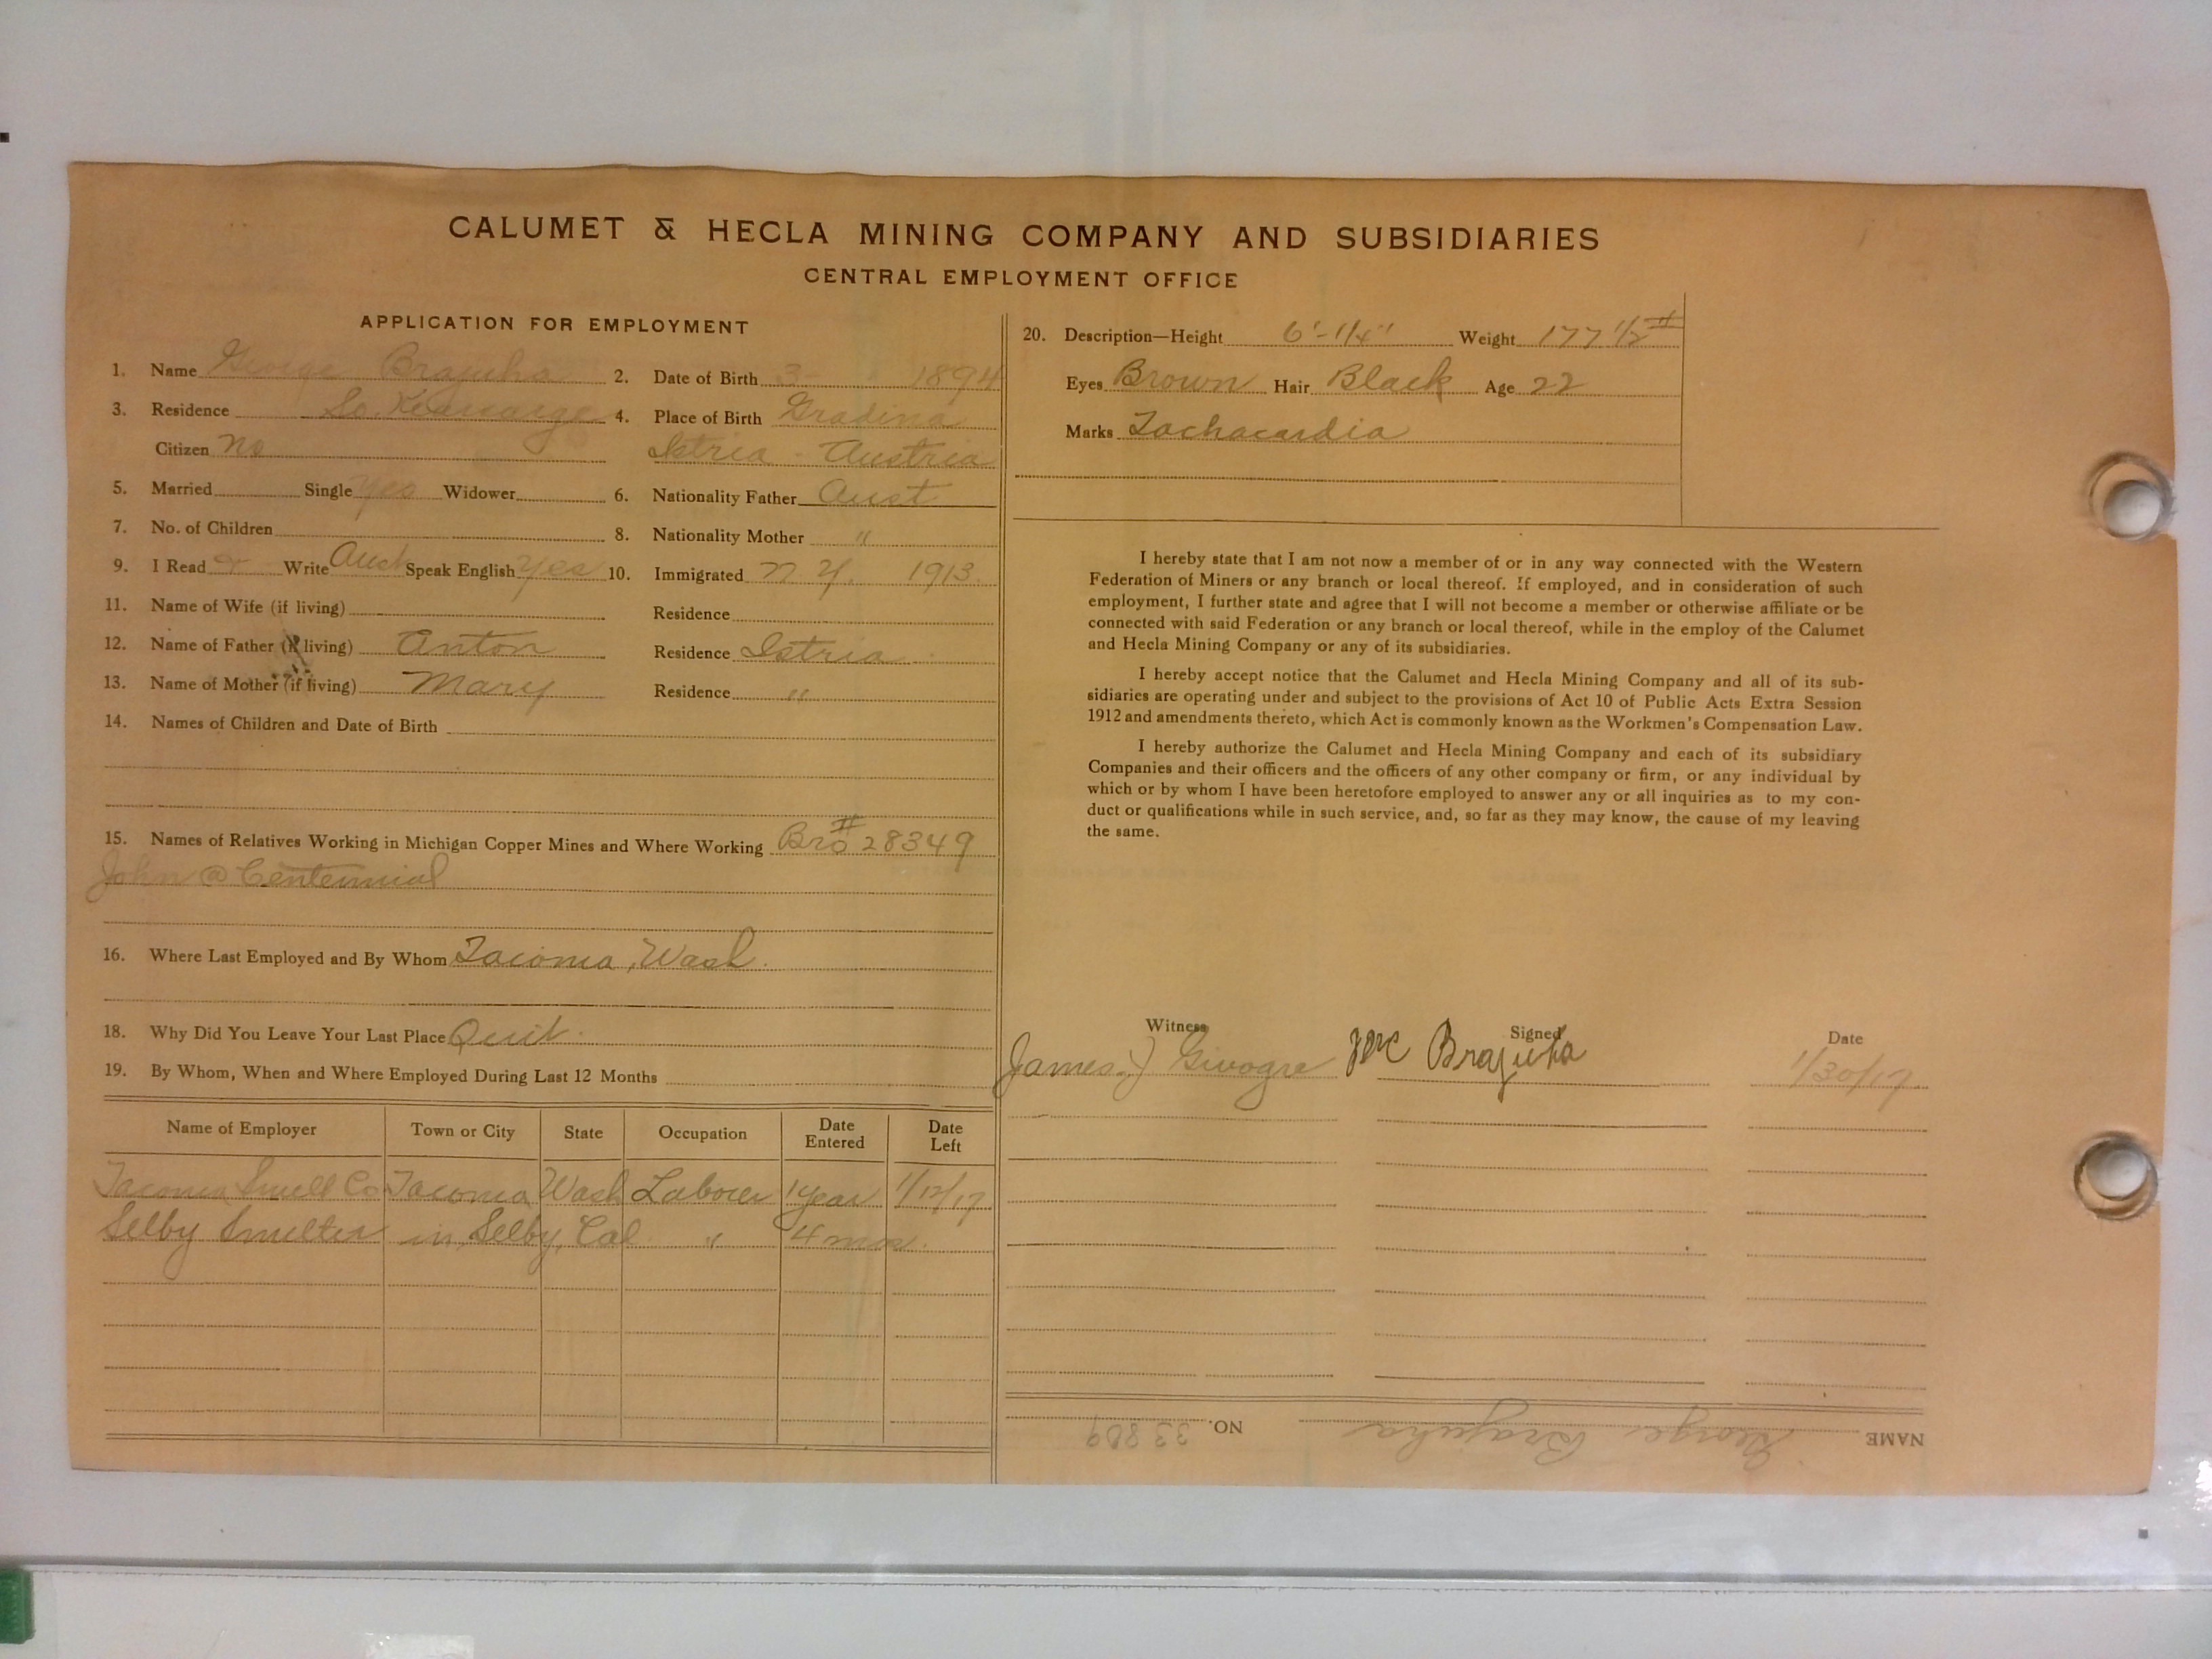 CALUMET & HECLA MINING COMPANY AND SUBSIDIARIES
CENTRAL EMPLOYMENT OFFICE
APPLICATION FOR EMPLOYMENT
1. Name George Brajuha 2. Date of Birth 3- 1894
3. Residence So. Kearsarge 4. Place of Birth Gradina
Citizen No Istria - Austria
5. Married Single Yes Widower 6. Nationality Father Aust
7. No. of Children 8. Nationality Mother "
9. I Read & Write Aust Speak English Yes 10. Immigrated N.Y. 1913.
11. Name of Wife (if living) Residence
12. Name of Father (if living) Anton Residence Istria
13. Name of Mother (if living) Mary Residence "
14. Names of Children and Date of Birth
15. Names of Relatives Working in Michigan Copper Mines and Where Working Bro # 28349
John @ Centennial
16. Where Last Employed and By Whom Tacoma, Wash.
18. Why Did You Leave Your Last Place Quit.
19. By Whom, When and Where Employed During Last 12 Months
Name of Employer Town or City State Occupation Date Entered Date Left
Tacoma Smelt Co Tacoma Wash Laborer 1 year 1/12/17
Selby Smelter in Selby, Cal " 4 mos.
20. Description—Height 6'-1/4" Weight 177 1/2 #
Eyes Brown Hair Black Age 22
Marks Tachacardia
I hereby state that I am not now a member of or in any way connected with the Western
Federation of Miners or any branch or local thereof. If employed, and in consideration of such
employment, I further state and agree that I will not become a member or otherwise affiliate or be
connected with said Federation or any branch or local thereof, while in the employ of the Calumet
and Hecla Mining Company or any of its subsidiaries.
I hereby accept notice that the Calumet and Hecla Mining Company and all of its sub-
sidiaries are operating under and subject to the provisions of Act 10 of Public Acts Extra Session
1912 and amendments thereto, which Act is commonly known as the Workmen's Compensation Law.
I hereby authorize the Calumet and Hecla Mining Company and each of its subsidiary
Companies and their officers and the officers of any other company or firm, or any individual by
which or by whom I have been heretofore employed to answer any or all inquiries as to my con-
duct or qualifications while in such service, and, so far as they may know, the cause of my leaving
the same.
Witness Signed Date
James J Brajuha 1/30/17
NAME George Brajuha NO. 33809